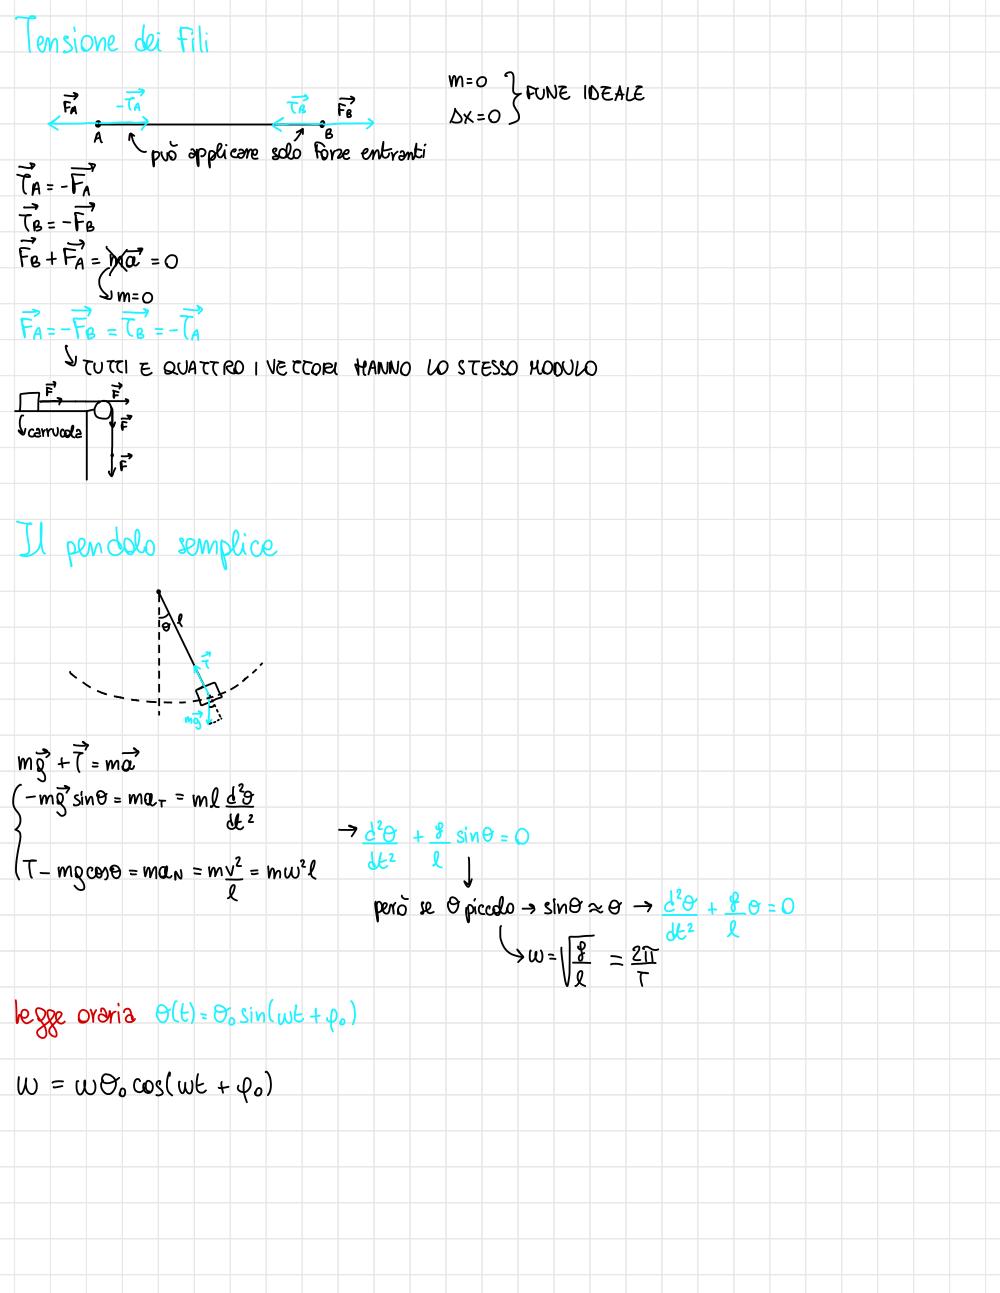 Tensione dei fili
F⃗A -T⃗A T⃗B F⃗B
A B
m=0
Δx=0
} FUNE IDEALE
può applicare solo forze entranti
T⃗A = -F⃗A
T⃗B = -F⃗B
F⃗B + F⃗A = ma⃗ = 0
m=0
F⃗A = -F⃗B = T⃗B = -T⃗A
TUTTI E QUATTRO I VETTORI HANNO LO STESSO MODULO
F⃗ F⃗
carrucola F⃗
F⃗
Il pendolo semplice
θ l
T⃗
mg⃗
mg⃗ + T⃗ = ma⃗
-mg⃗ sinθ = maT = ml d²θ/dt²
T - mg cosθ = maN = mv²/l = mω²l
→ d²θ/dt² + g/l sinθ = 0
però se θ piccolo → sinθ ≈ θ → d²θ/dt² + g/l θ = 0
ω = √(g/l) = 2π/T
legge oraria θ(t) = θ₀ sin(ωt + φ₀)
ω = ωθ₀ cos(ωt + φ₀)